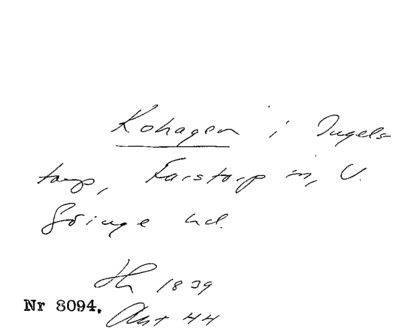 Kohagen i Ingels-
torp, Farstorp sn, V.
Göinge hd.
Lh 1839
Nr 8094.
Akt 44